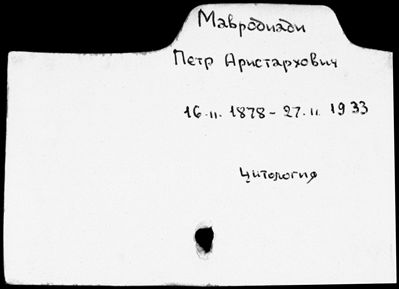 Мавродиади
Петр Аристархович
16.II. 1878 - 27.II. 1933
Цитология